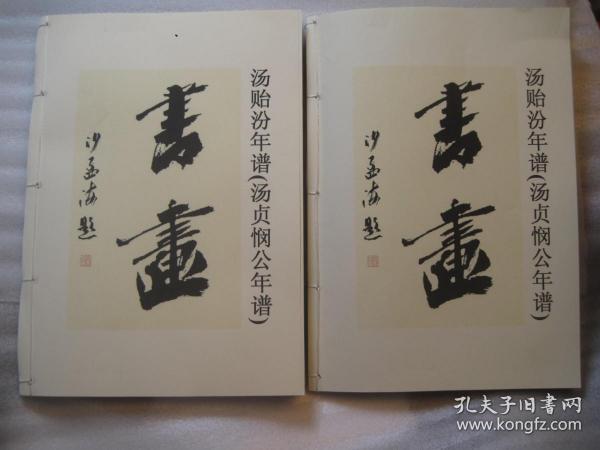 汤贻汾年谱(汤贞悯公年谱)
書畫
沙孟海题
汤贻汾年谱(汤贞悯公年谱)
書畫
沙孟海题
孔夫子旧书网
www.kongfz.com